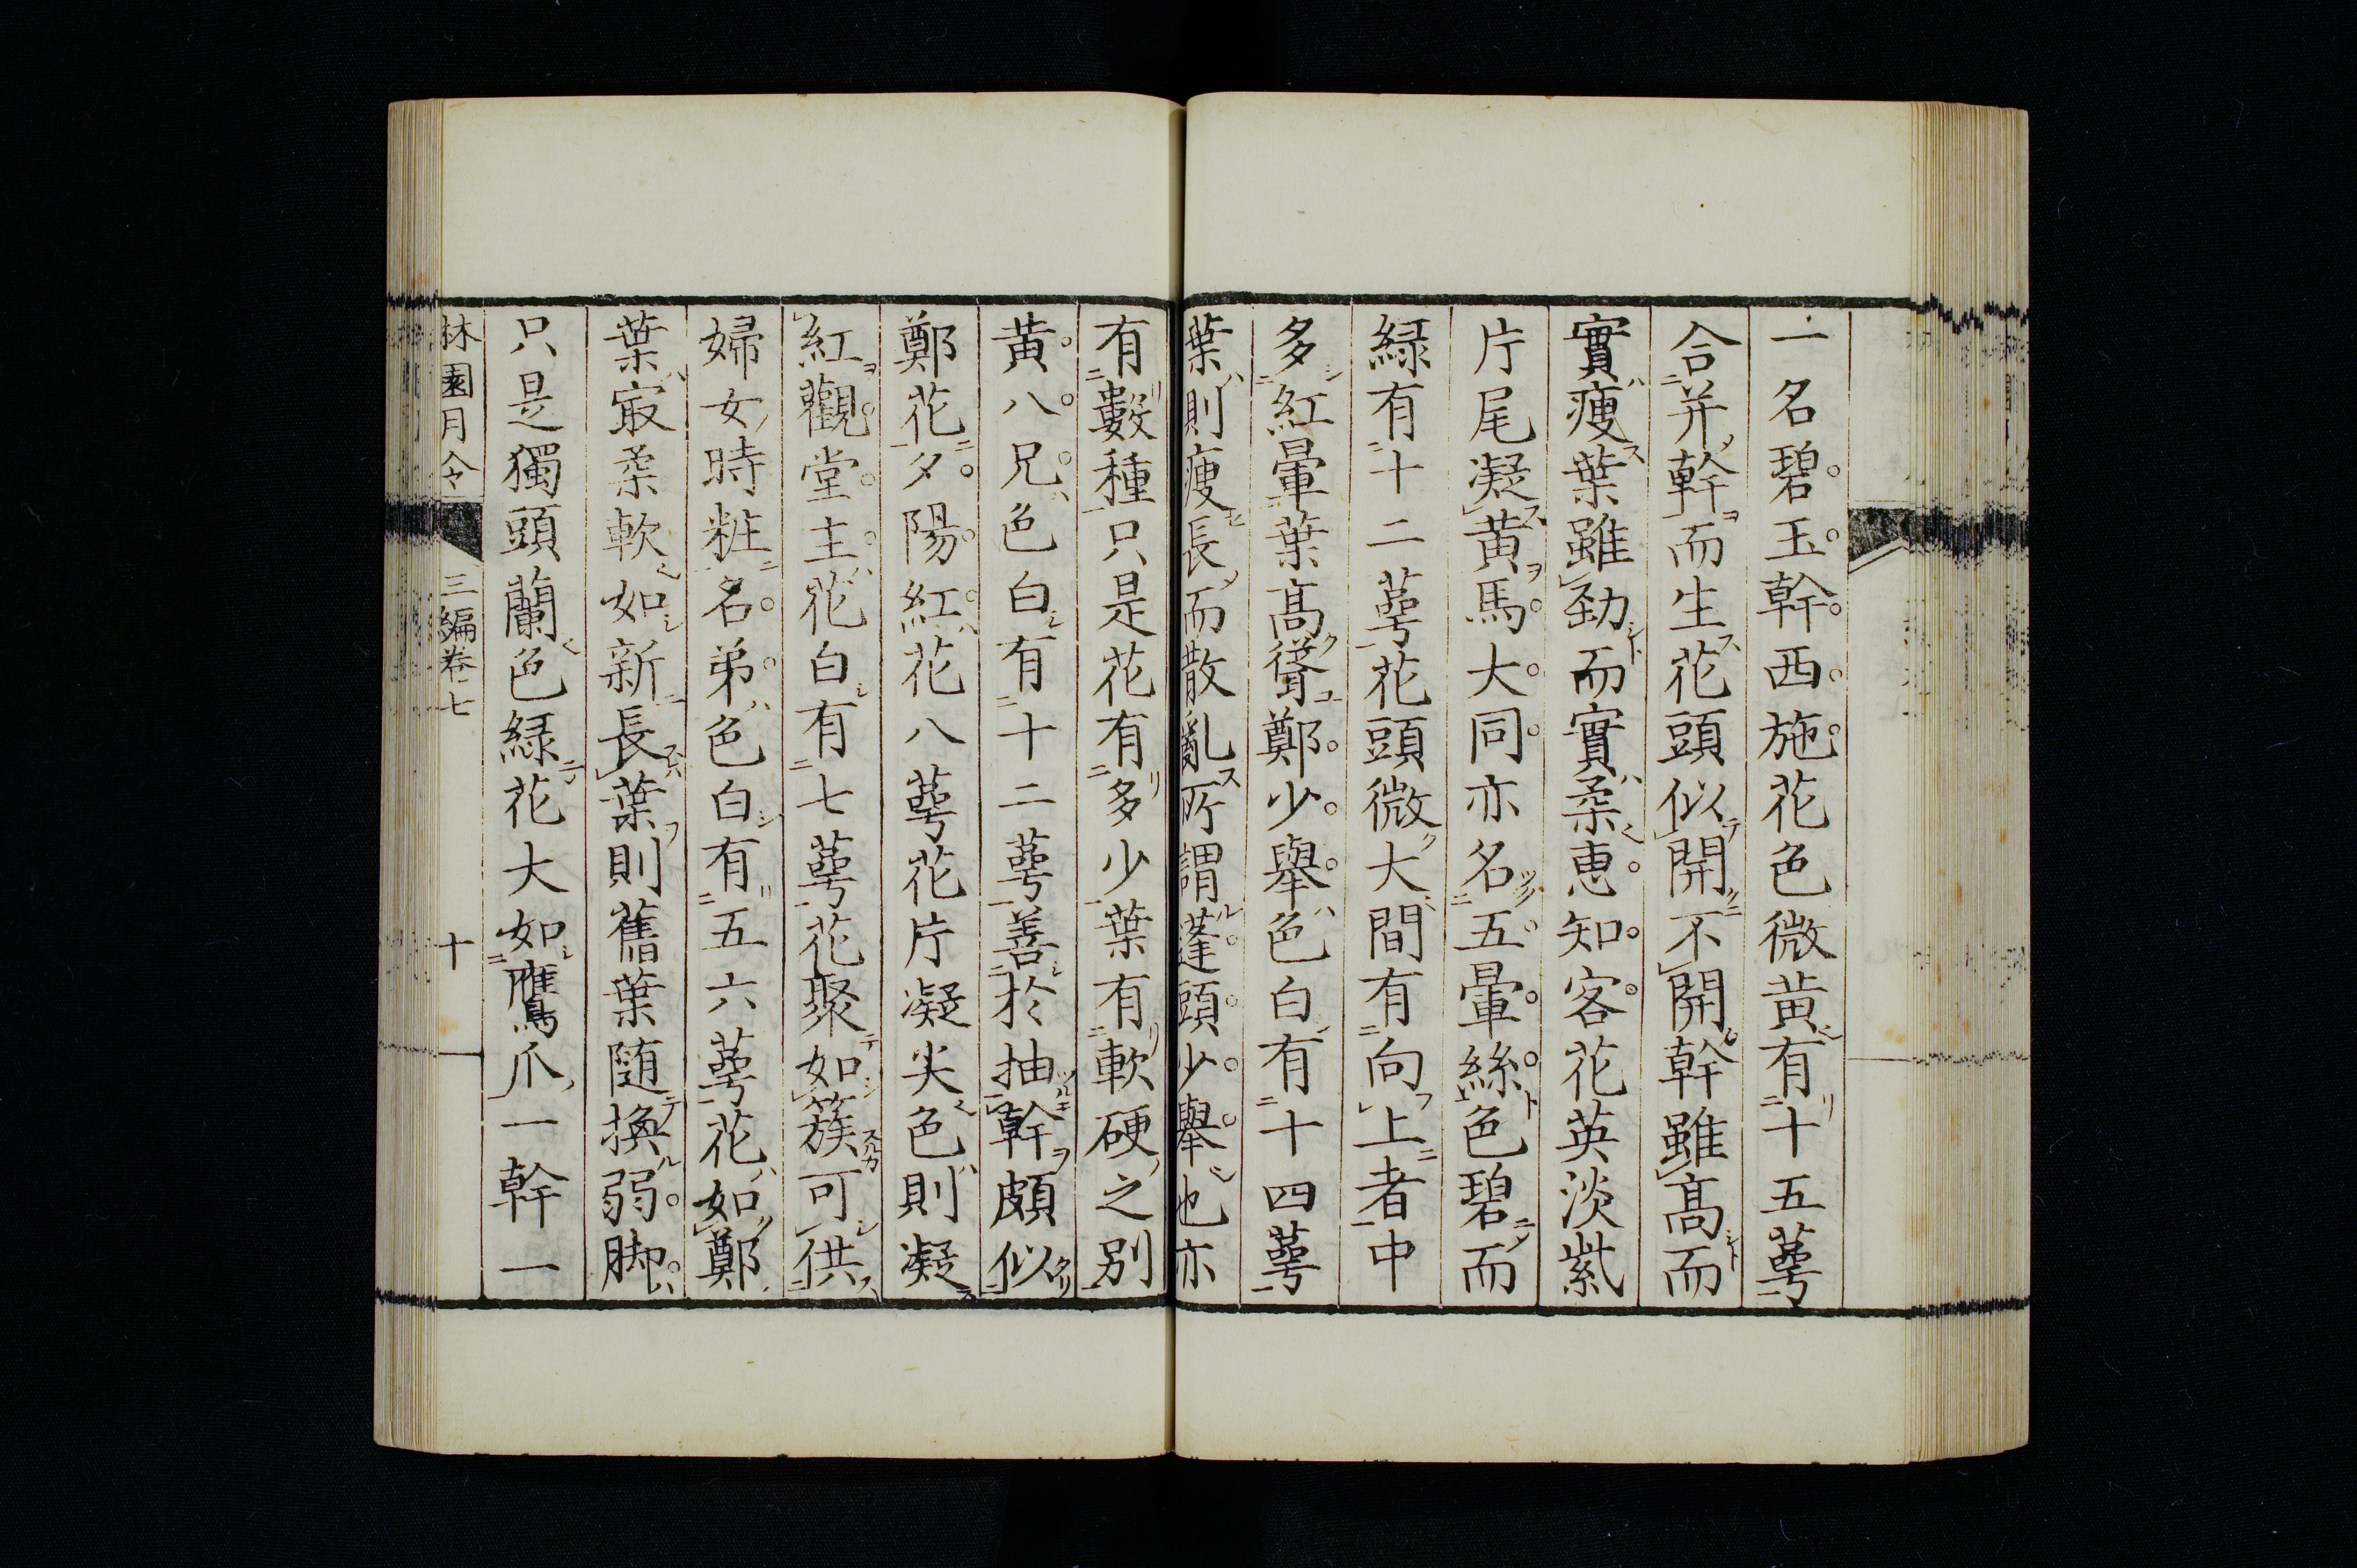 一名碧玉幹西施花色微黄有十五蕚
合并幹而生花頭似開不開幹雖髙而
實瘦葉雖勁而實柔恵知客花英淡紫
片尾凝黄馬大同亦名五暈絲色碧而
緑有十二蕚花頭微大間有向上者中
多紅暈葉髙聳鄭少舉色白有十四蕚
葉則瘦長而散亂所謂蓬頭少舉也亦
有數種只是花有多少葉有軟硬之别
黄八兄色白有十二蕚善於抽幹頗似
鄭花夕陽紅花八蕚花片凝尖色則凝
紅觀堂主花白有七蕚花聚如簇可供
婦女時粧名弟色白有五六蕚花如鄭
葉㝡柔軟如新長葉則舊葉随換弱脚
只是獨頭蘭色緑花大如鷹爪一幹一
林園月令 三編卷七 十